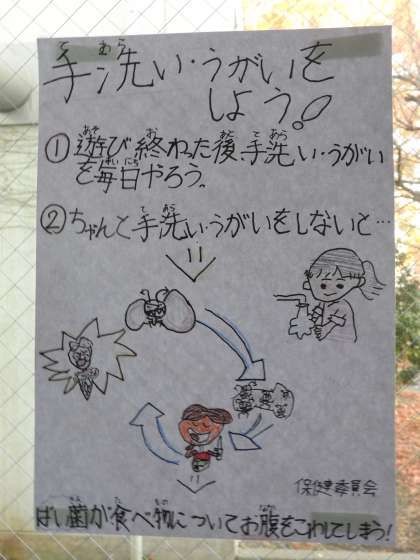 手洗い・うがいを
しよう!
①遊び終わった後、手洗い・うがい
を毎日やろう。
②ちゃんと手洗い・うがいをしないと…
保健委員会
ばい菌が食べ物についてお腹をこわしてしまう!